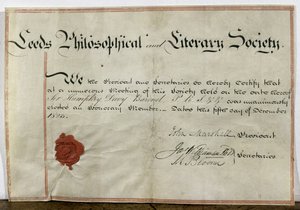 Leeds Philosophical and Literary Society.
We the President and Secretaries do hereby Certify that
at a numerous Meeting of this Society held on the date hereof
Sir Humphry Davy Baronet was unanimously
elected an Honorary Member. Dated this fifth day of December
John Marshall President
Secretaries